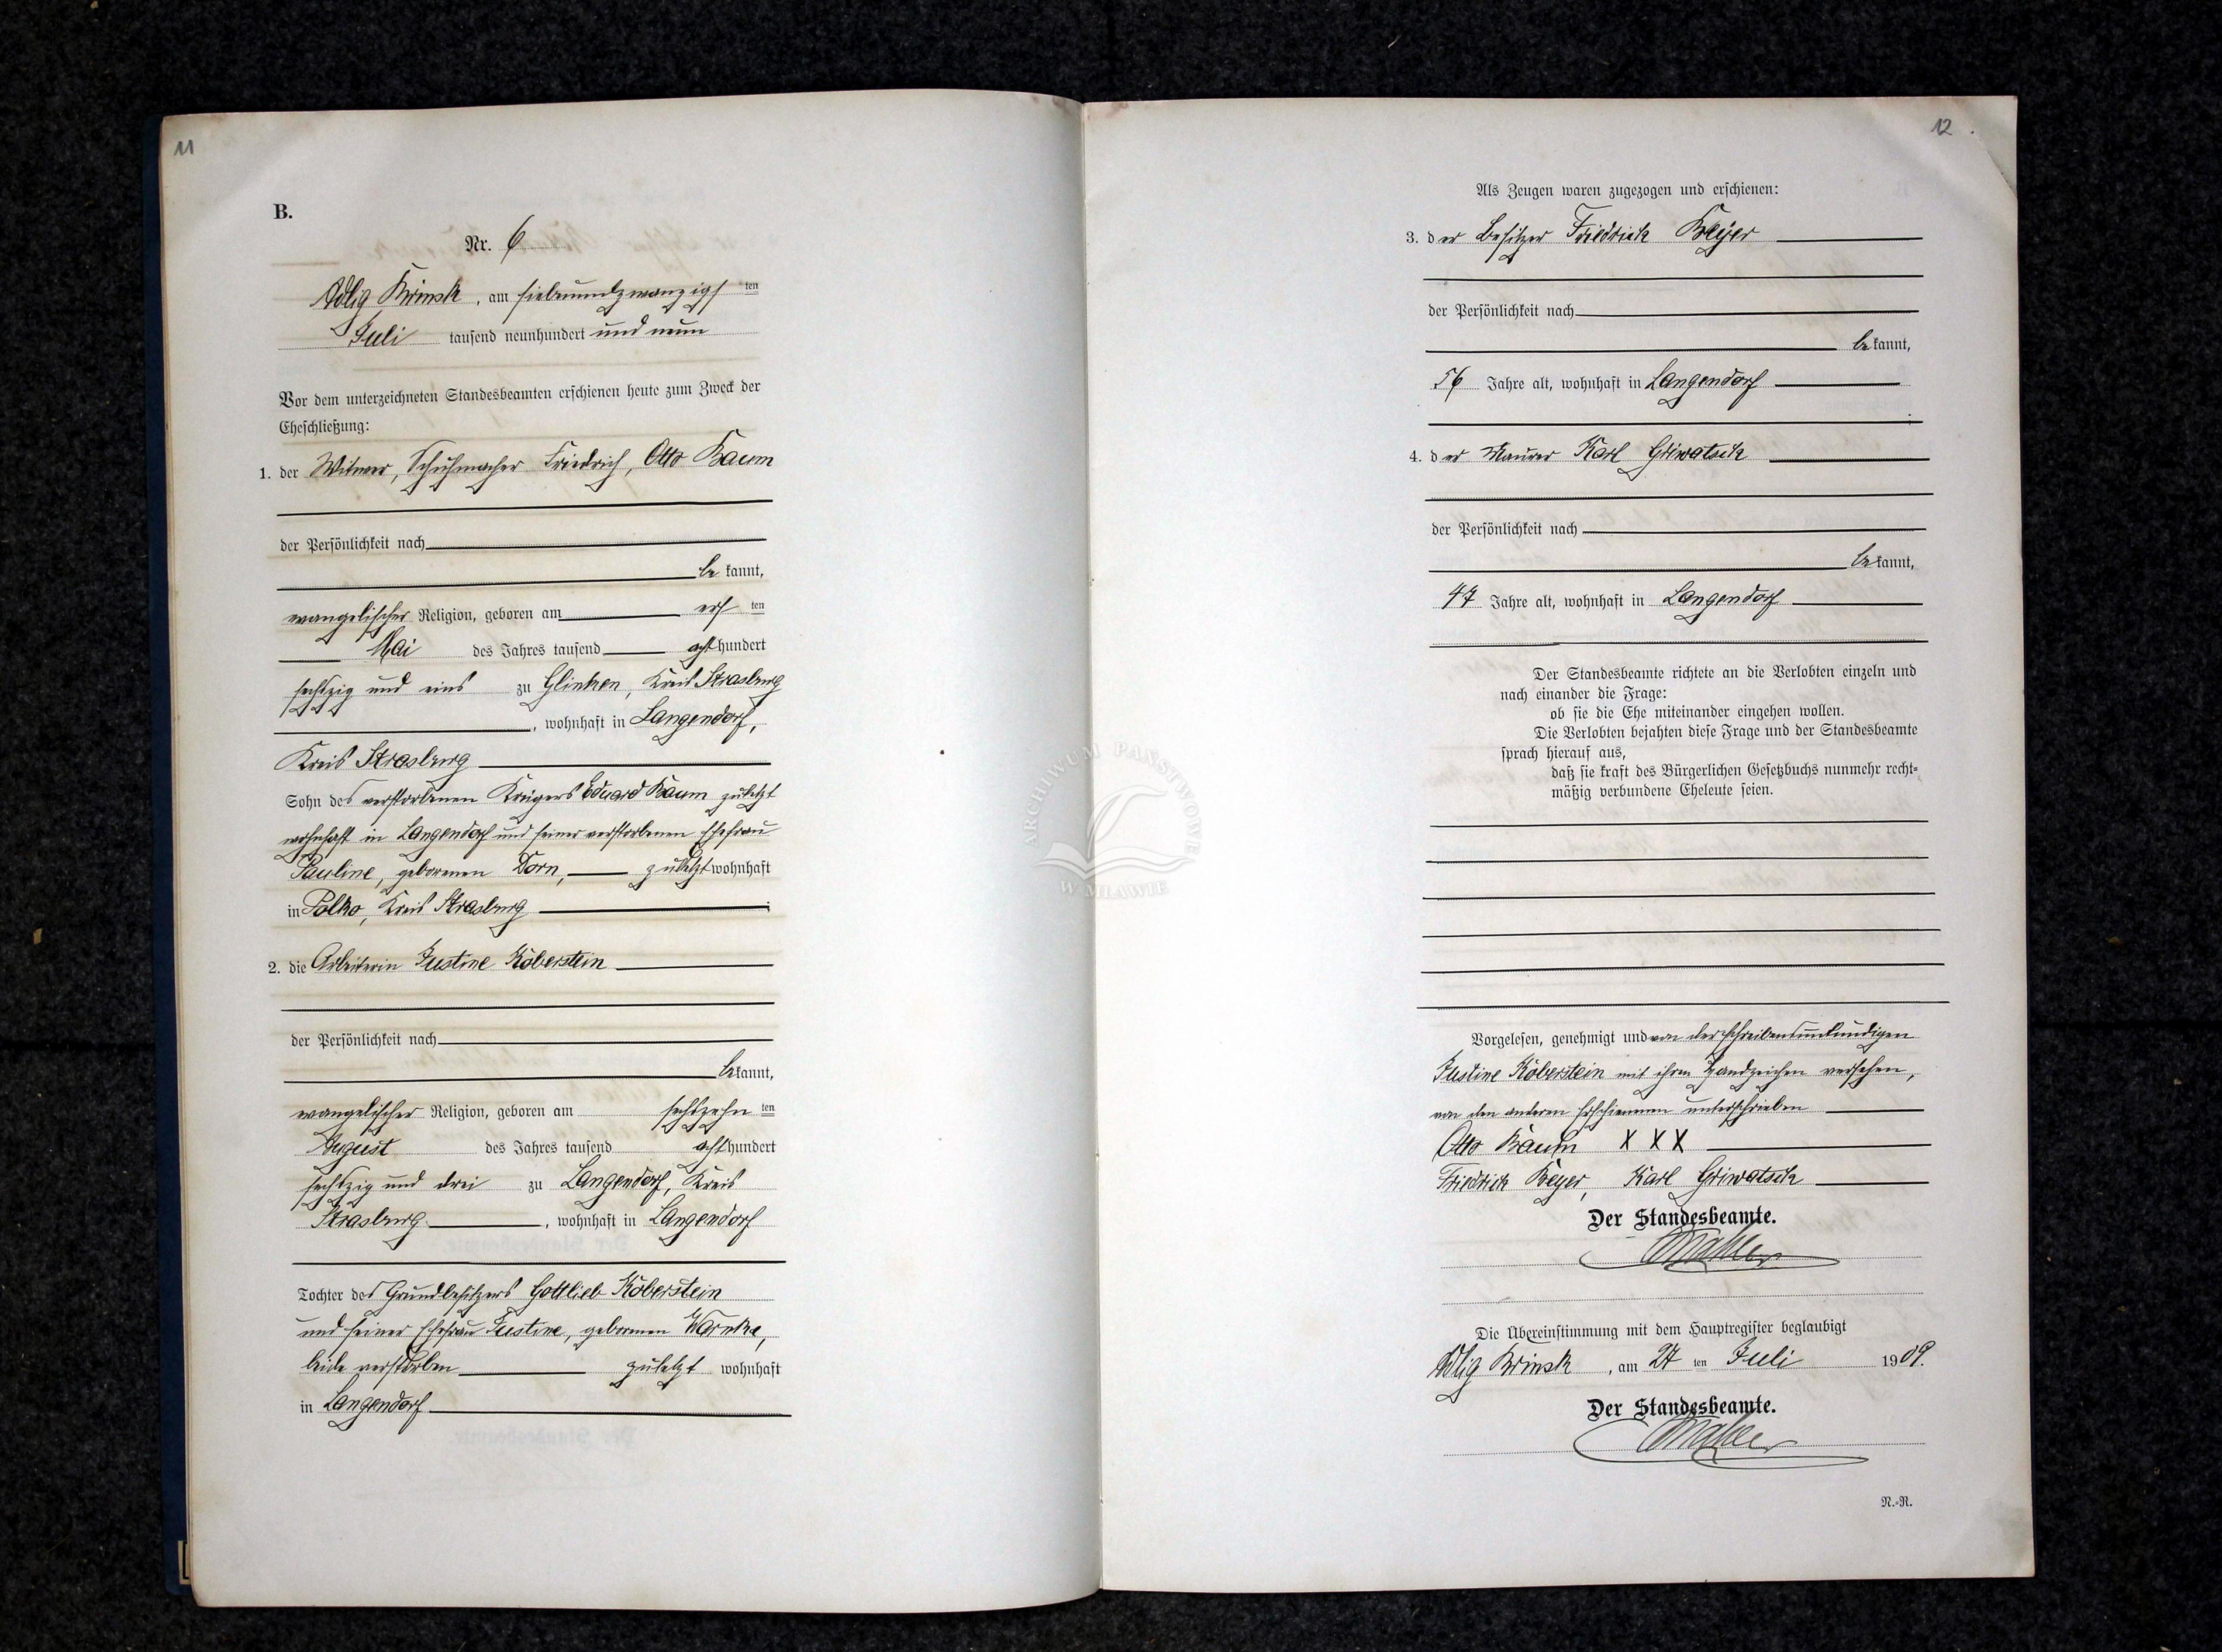 11
B.
Nr. 6
Adlig Kruisk, am siebenundzwanzigsten
Juli tausend neunhundert und neun
Vor dem unterzeichneten Standesbeamten erschienen heute zum Zweck der
Eheschließung:
1. der Witwer, Schuhmacher Friedrich, Otto Baum
der Persönlichkeit nach
be kannt,
evangelischer Religion, geboren am ersten
Mai des Jahres tausend achthundert
sechszig und eins zu Glinken, Kreis Strasburg
, wohnhaft in Langendorf,
Kreis Strasburg
Sohn des verstorbenen Krügers Eduard Baum zuletzt
wohnhaft in Langendorf und seiner verstorbenen Ehefrau
Pauline, geborenen Dorn, zuletzt wohnhaft
in Polko, Kreis Strasburg
2. die Arbeiterin Justine Köberstein
der Persönlichkeit nach
bekannt,
evangelischer Religion, geboren am sechszehnten
August des Jahres tausend achthundert
sechszig und drei zu Langendorf, Kreis
Strasburg, wohnhaft in Langendorf
Tochter des Grundbesitzers Gottlieb Köberstein
und seiner Ehefrau Justine, geborenen Warnke,
beide verstorben zuletzt wohnhaft
in Langendorf
12
Als Zeugen waren zugezogen und erschienen:
3. der Besitzer Friedrich Beyer
der Persönlichkeit nach
bekannt,
56 Jahre alt, wohnhaft in Langendorf
4. der Maurer Karl Griwatsch
der Persönlichkeit nach
bekannt,
47 Jahre alt, wohnhaft in Langendorf
Der Standesbeamte richtete an die Verlobten einzeln und
nach einander die Frage:
ob sie die Ehe miteinander eingehen wollen.
Die Verlobten bejahten diese Frage und der Standesbeamte
sprach hierauf aus,
daß sie kraft des Bürgerlichen Gesetzbuchs nunmehr recht-
mäßig verbundene Eheleute seien.
Vorgelesen, genehmigt und von der schreibensunkundigen
Justine Köberstein mit ihrem Handzeichen versehen,
von den anderen Erschienenen unterschrieben
Otto Baum X X X
Friedrich Beyer, Karl Griwatsch
Der Standesbeamte.
Die Übereinstimmung mit dem Hauptregister beglaubigt
Adlig Kruisk, am 27 ten Juli 1909.
Der Standesbeamte.
N.-R.
ARCHIWUM PAŃSTWOWE
W MŁAWIE